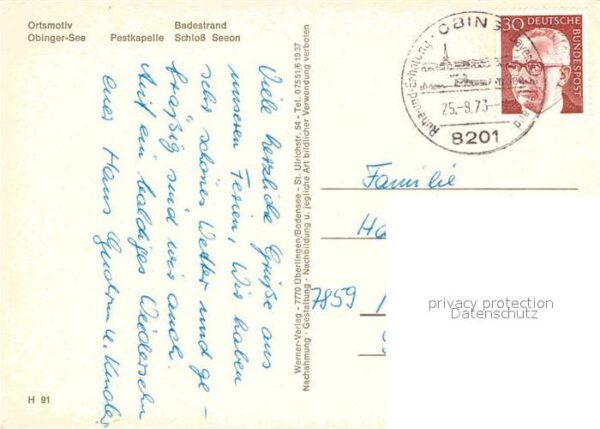 Ortsmotiv Badestrand
Obinger-See Pestkapelle Schloß Seeon
Viele herzliche Grüße aus
unseren Ferien, Wir haben
sehr schönes Wetter und ge-
fräßig sind wir auch.
Auf ein baldiges Wiedersehn
eures Hans Gudrun u. Kinder
H 91
Werner-Verlag - 7770 Überlingen/Bodensee - St. Ulrichstr. 54 - Tel. 07551/61937
Nachahmung - Gestaltung - Nachbildung u. jegliche Art bildlicher Verwendung verboten
OBING
Ruhe und Erholung
25.-8.73
8201
30 DEUTSCHE
BUNDESPOST
Familie
7859
privacy protection
Datenschutz